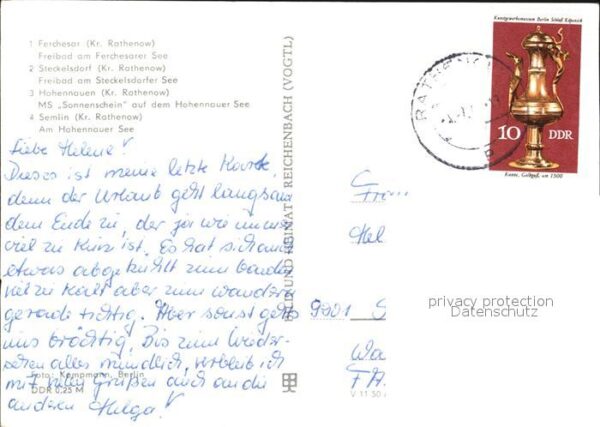 1 Ferchesar (Kr. Rathenow)
Freibad am Ferchesarer See
2 Steckelsdorf (Kr. Rathenow)
Freibad am Steckelsdorfer See
3 Hohennauen (Kr. Rathenow)
MS „Sonnenschein" auf dem Hohennauer See
4 Semlin (Kr. Rathenow)
Am Hohennauer See
Liebe Helene!
Dieses ist meine letzte Karte,
denn der Urlaub geht langsam
dem Ende zu, der ja wie immer
viel zu kurz ist. Es hat sich auch
etwas abgekühlt zum baden
viel zu kalt aber zum wandern
gerade richtig. Aber sonst geht's
uns prächtig. Bis zum Wieder-
sehen alles mündlich, verbleib ich
mit vielen Grüßen auch an die
anderen Helga!
Foto: Kampmann, Berlin
DDR 0,25 M
BILD UND HEIMAT REICHENBACH (VOGTL)
V 11 50
Kunstgewerbemuseum Berlin Schloß Köpenick
10 DDR
Kanne, Gelbguß, um 1500
RATHENOW
Hel
9901 S
Wa
privacy protection
Datenschutz